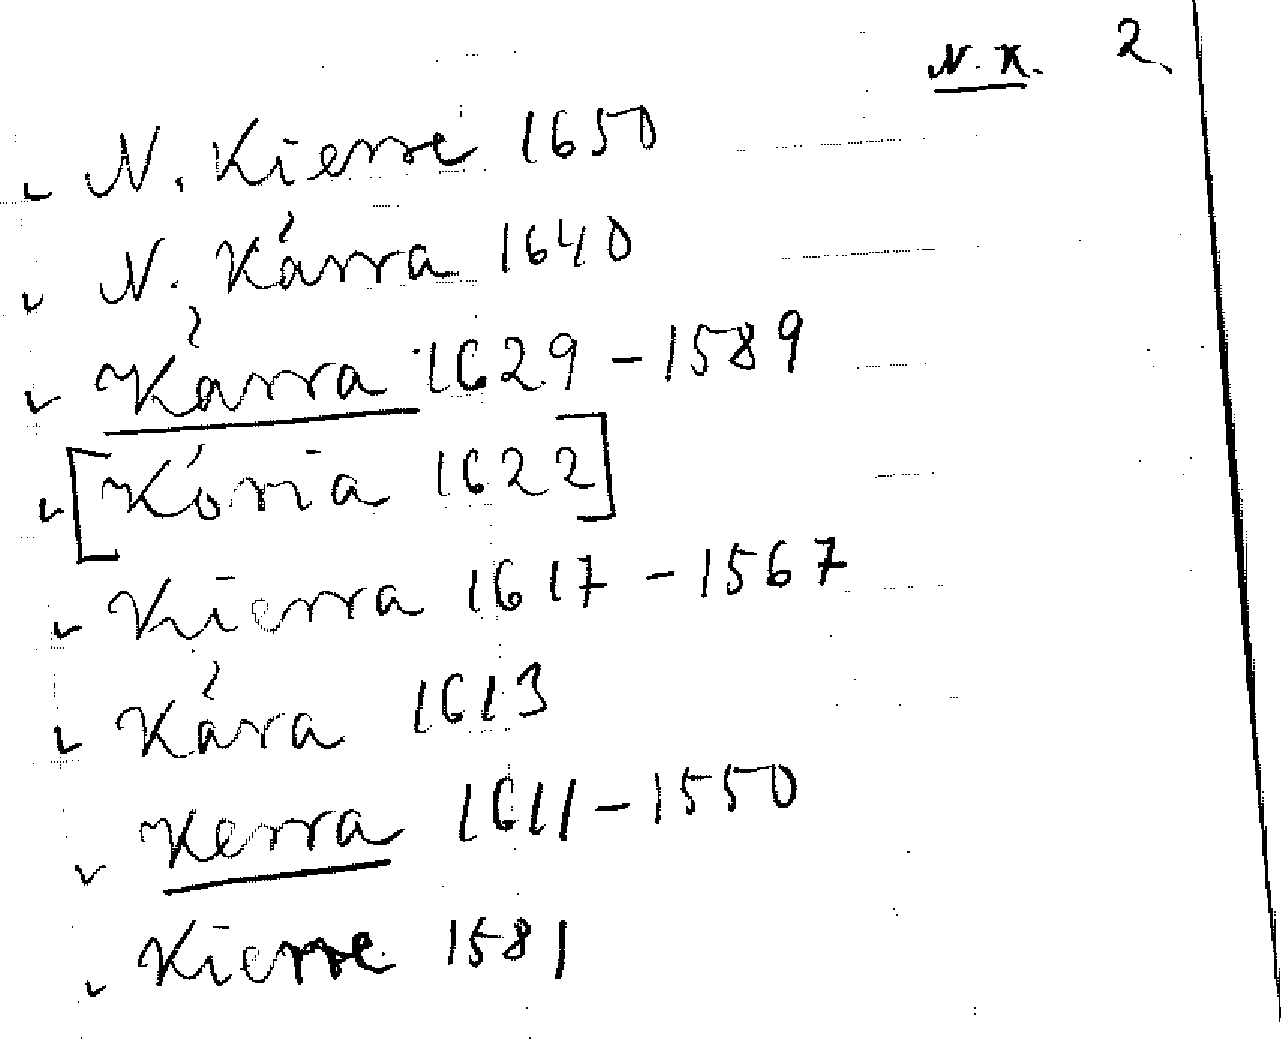 N. K. 2.
N. Kierre 1650
N. Kárra 1640
Kárra 1629 – 1589
[Kória 1622]
Kierra 1617 – 1567
Kára 1613
Kerra 1611 – 1550
Kierre 1581